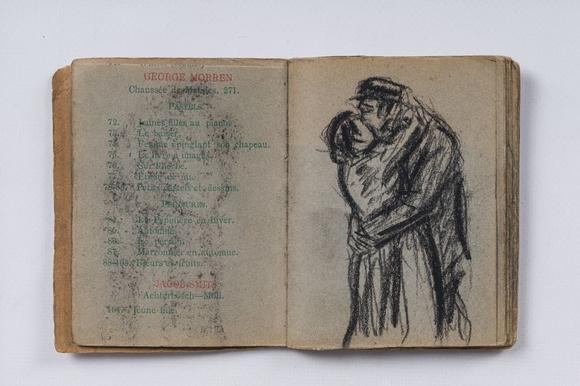 GEORGE MORREN
Chaussée de Malines, 271.
PASTELS.
72. Jeunes filles au piano.
73. Le baiser.
74. Femme épinglant son chapeau.
75. Le livre à images.
76.
77. Etude de nu.
78-83. Petits pastels et dessins.
PEINTURES.
84. La Pépinière en hiver.
85. Automne.
86. Le
87. Marronnier en automne.
Fleurs et fruits.
JACOB SMITS
Achterbosch—Moll.
Jeune fille.